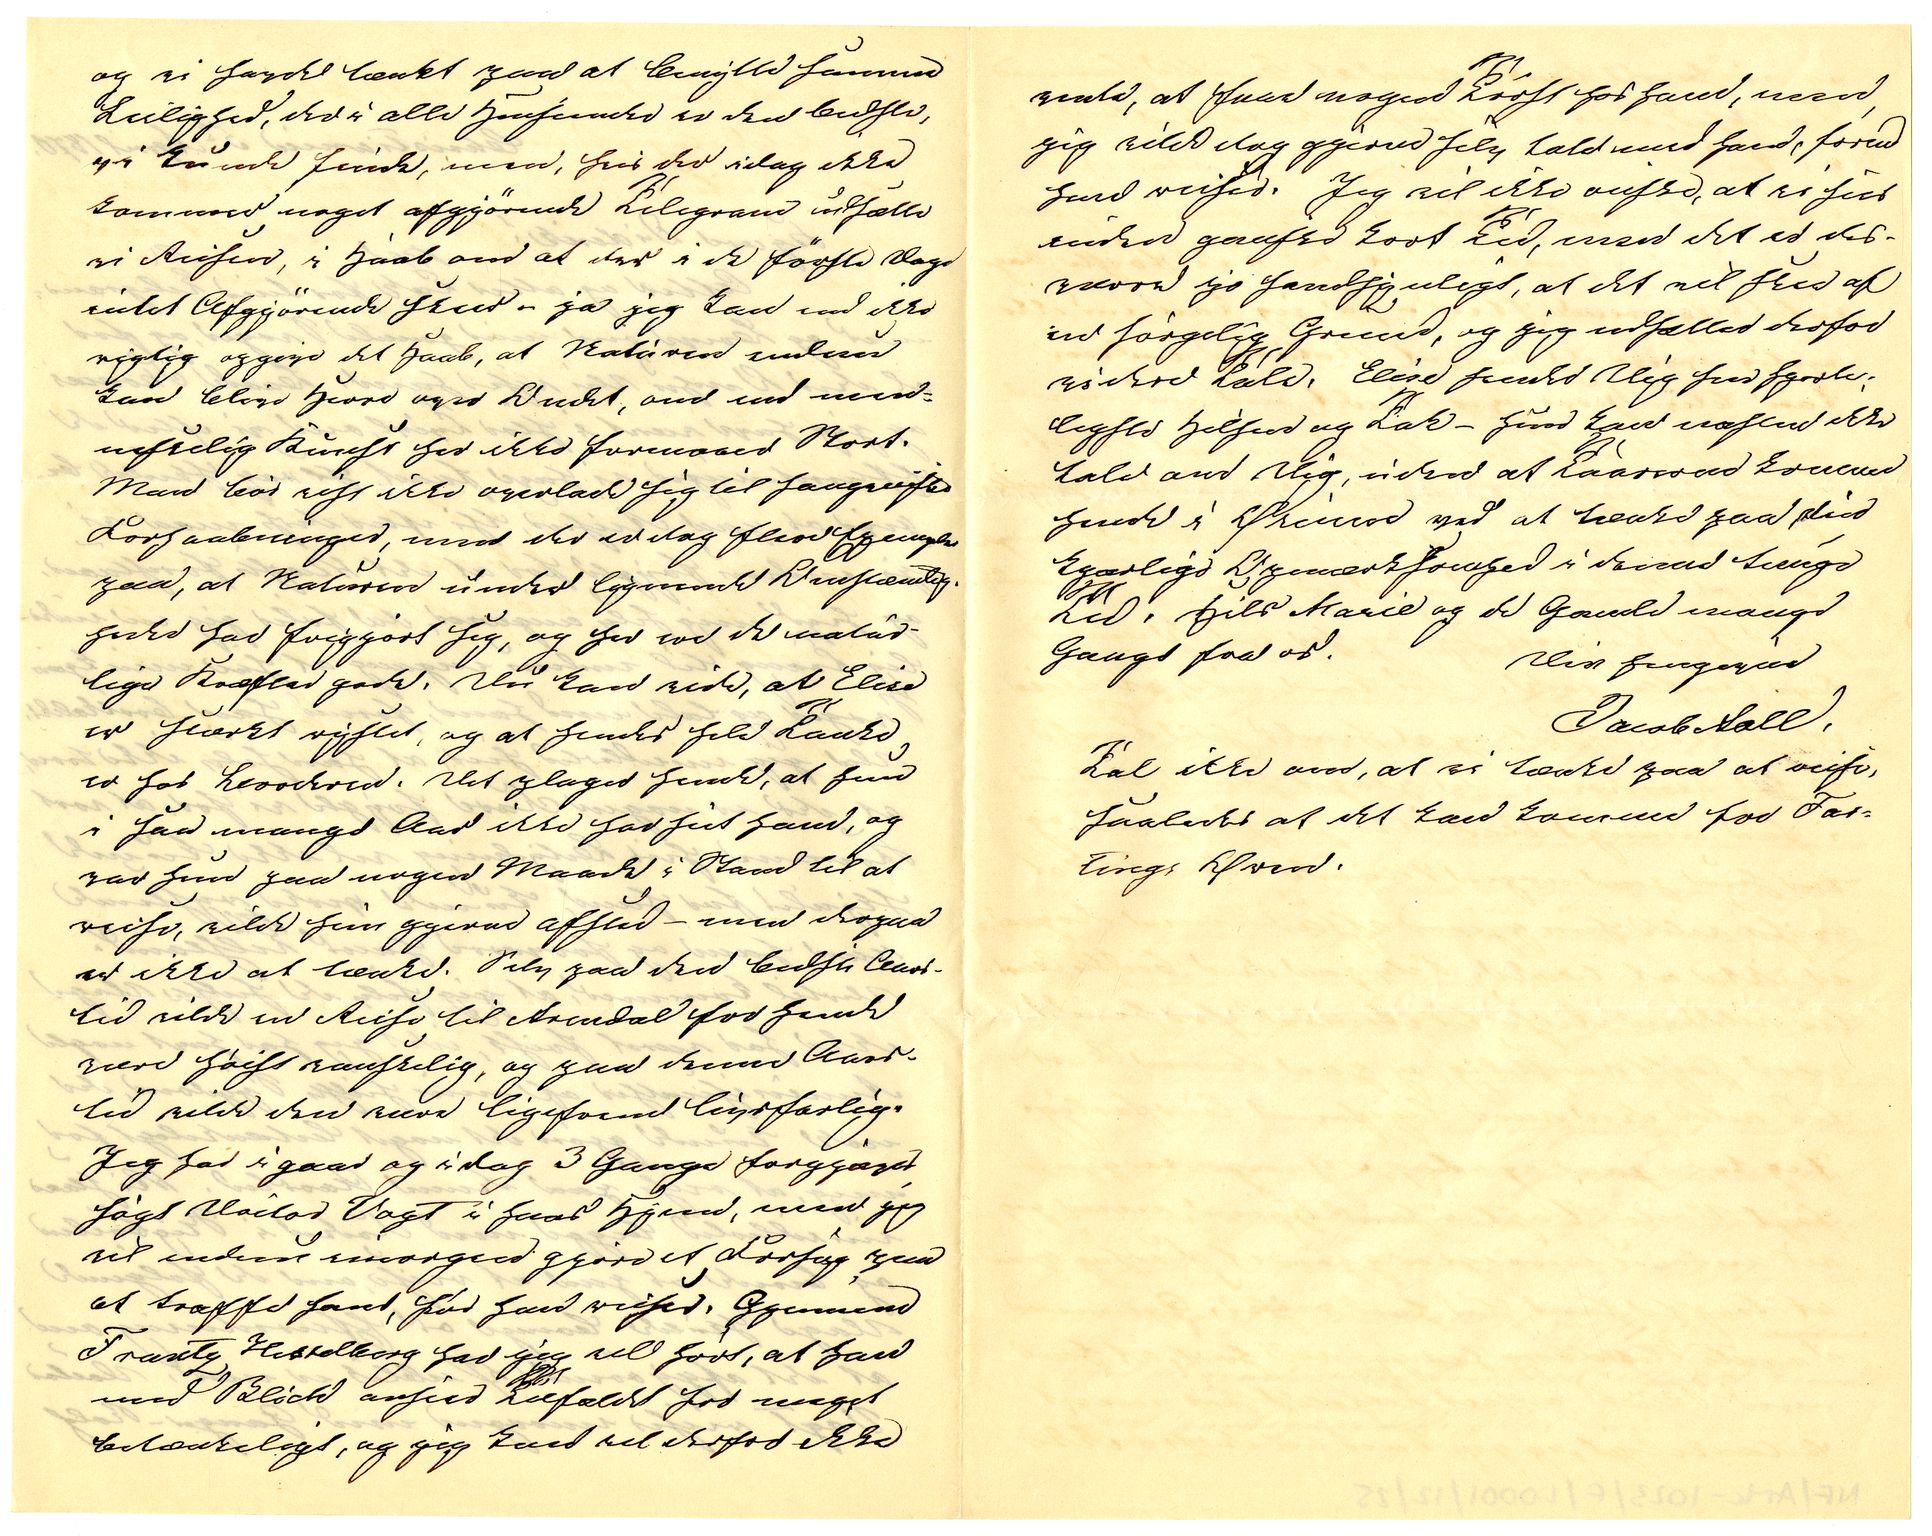 og vi havde tænkt paa at benytte samme
Leilighed, der i alle Henseender er den bedste,
vi kunde finde, men, hvis der idag ikke
kommer noget afgjörende Telegram udsætte
vi Reisen, i Haab om at der i de förste Dage
intet Afgjörende skeer – ja jeg kan end ikke
rigtig opgive det Haab, at Naturen endnu
kan blive Herre over Ondet, om end men-
neskelig Kunst her ikke formaaer Stort.
Man bör vist ikke overlade sig til sangvinske
Forhaabninger, men der er dog flere Exempler
paa, at Naturen under lignende Omstændig-
heder har frigjort sig, og her ere de natur-
lige Kræfter gode. Du kan vide, at Elise
er stærkt rystet, og at hendes hele Tanke
er hos Broderen. Det plager hende, at hun
i saa mange Aar ikke har seet ham, og
var hun paa nogen Maade i Stand til at
reise, vilde hun gjerne afsted – men derpaa
er ikke at tænke. Selv paa den bedste Aars-
tid vilde en Reise til Arendal for hende
være höist vanskelig, og paa denne Aars-
tid vilde den være ligefrem livsfarlig.
Jeg har igaar og idag 3 Gange forgjæves
sögt Doctor Vogt i hans Hjem, men jeg
vil endnu imorgen gjöre et Forsög paa
at træffe ham, för han reiser. Gjennem
Frantz Hesselberg har jeg vel hört, at han
med Blich anseer Tilfældet for meget
betænkeligt, og jeg kan vel derfor ikke
vente, at faae nogen Tröst hos ham, men
jeg vilde dog gjerne selv tale med ham, förend
han reiser. Jeg vil ikke önske, at vi sees
inden ganske kort Tid, men det er des-
værre jo sandsynligt, at det vil skee af
en sörgelig Grund, og jeg udsætter derfor
videre Tale. Elise sender Dig sin hjerte-
ligste Hilsen og Tak – hun kan næsten ikke
tale om Dig, uden at Taarerne komme
hende i Öinene ved at tænke paa din
kjærlige Opmærksomhed i denne tunge
Tid. Hils Marie og de Gamle mange
Gange fra os.
Din hengivne
Jacob Aall.
Tal ikke om, at vi tænke paa at reise,
saaledes at det kan komme for Far-
tings Ören.